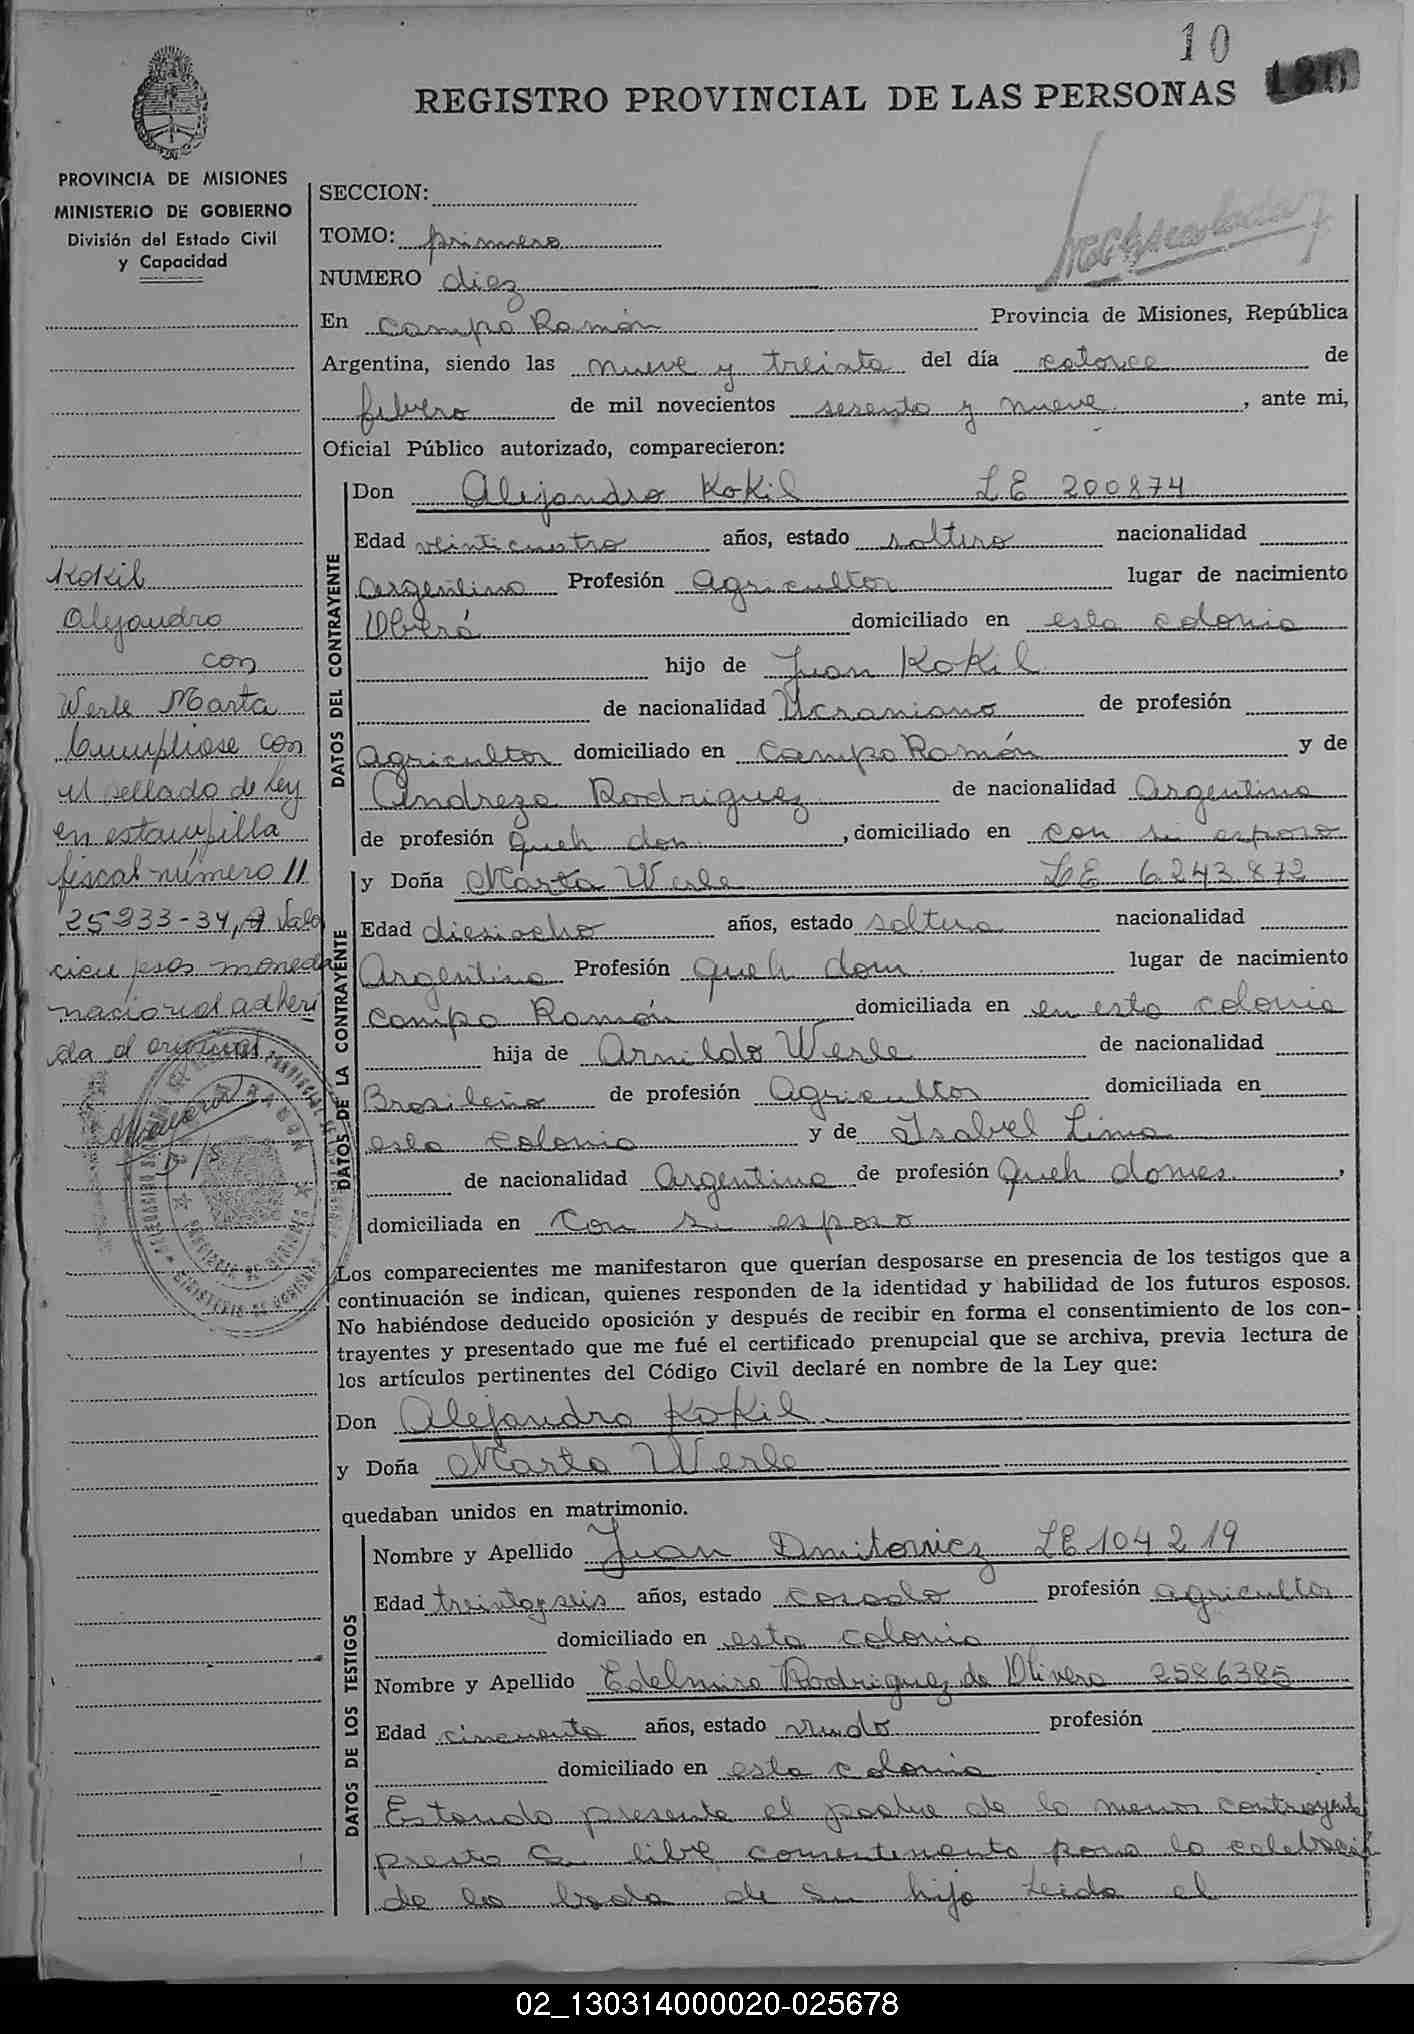 10
180
REGISTRO PROVINCIAL DE LAS PERSONAS
PROVINCIA DE MISIONES
MINISTERIO DE GOBIERNO
División del Estado Civil
y Capacidad
SECCION:
TOMO: primero
NUMERO diez
En Campo Ramón Provincia de Misiones, República
Argentina, siendo las nueve y treinta del día catorce de
febrero de mil novecientos sesenta y nueve, ante mi,
Oficial Público autorizado, comparecieron:
DATOS DEL CONTRAYENTE
Don Alejandro Kokil LE 200874
Edad veinticuatro años, estado soltero nacionalidad
argentino Profesión Agricultor lugar de nacimiento
Oberá domiciliado en esta colonia
hijo de Juan Kokil
de nacionalidad Ucraniano de profesión
Agricultor domiciliado en Campo Ramón y de
Andreza Rodriguez de nacionalidad Argentina
de profesión Queh dom, domiciliado en con su esposo
DATOS DE LA CONTRAYENTE
y Doña Marta Werle LE 6243872
Edad diesiocho años, estado soltera nacionalidad
Argentina Profesión Queh dom lugar de nacimiento
Campo Ramón domiciliada en en esta colonia
hija de Arnildo Werle de nacionalidad
Brasileño de profesión Agricultor domiciliada en
esta colonia y de Isabel Lima
de nacionalidad Argentina de profesión Queh domes,
domiciliada en Con su esposo
Los comparecientes me manifestaron que querían desposarse en presencia de los testigos que a
continuación se indican, quienes responden de la identidad y habilidad de los futuros esposos.
No habiéndose deducido oposición y después de recibir en forma el consentimiento de los con-
trayentes y presentado que me fué el certificado prenupcial que se archiva, previa lectura de
los artículos pertinentes del Código Civil declaré en nombre de la Ley que:
Don Alejandro Kokil
y Doña Marta Werle
quedaban unidos en matrimonio.
DATOS DE LOS TESTIGOS
Nombre y Apellido Juan Dmitowicz LE 104219
Edad treintayseis años, estado casado profesión agricultor
domiciliado en esta colonia
Nombre y Apellido Edelmira Rodriguez da Olivera 2586385
Edad cincuenta años, estado viudo profesión
domiciliado en esta colonia
Estando presente el padre de la menor contrayente
presta su libre consentimento para la celebración
de la boda de su hija Leida el
Kokil
Alejandro
con
Werle Marta
Cumpliose con
el sellado de ley
en estampilla
fiscal número 11
25933-34, A Valor
cien pesos moneda
nacional adheri
da al original.
02_130314000020-025678